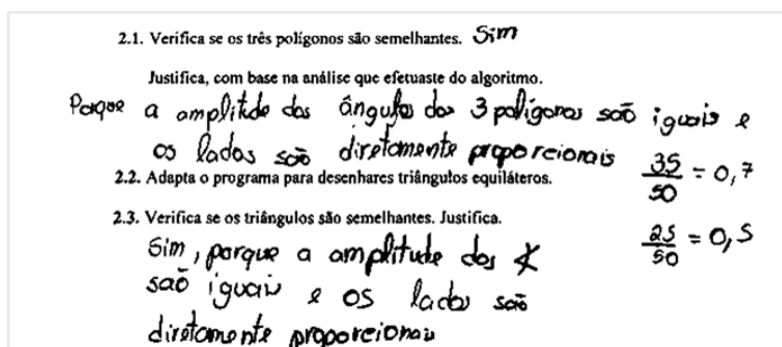 2.1. Verifica se os três polígonos são semelhantes. Sim
Justifica, com base na análise que efetuaste do algoritmo.
Porque a amplitude dos ângulos dos 3 polígonos são iguais e
os lados são diretamente proporcionais
35/50 = 0,7
2.2. Adapta o programa para desenhares triângulos equiláteros.
2.3. Verifica se os triângulos são semelhantes. Justifica.
25/50 = 0,5
Sim, porque a amplitude dos ∢
são iguais e os lados são
diretamente proporcionais